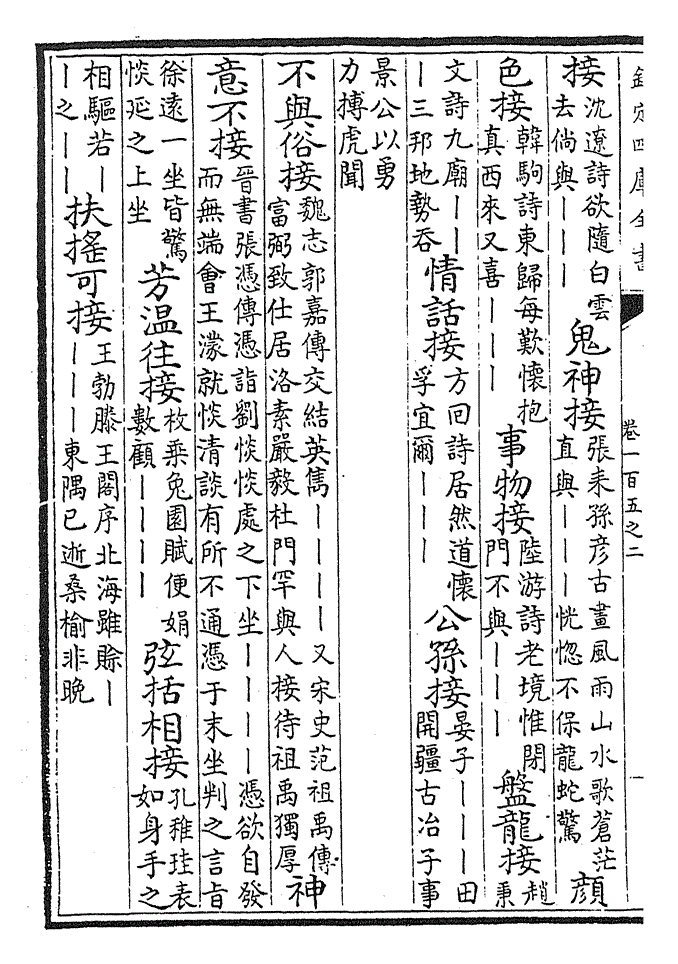 欽定四庫全書 卷一百五之二
接沈遼詩欲隨白雲去倘與｜｜｜鬼神接張耒孫彦古畫風雨山水歌蒼茫直與｜｜｜恍惚不保龍蛇驚顔
色接韓駒詩東歸每歎懐抱真西來又喜｜｜｜事物接陸游詩老境惟閉門不與｜｜｜盤龍接趙秉
文詩九廟｜｜｜三邦地勢吞情話接方回詩居然道懐孚宜爾｜｜｜公孫接晏子｜｜｜田開疆古冶子事
景公以勇力搏虎聞
不與俗接魏志郭嘉傳交結英雋｜｜｜｜又宋史范祖禹傳富弼致仕居洛素嚴毅杜門罕與人接待祖禹獨厚神
意不接晉書張憑傳憑詣劉惔惔處之下坐｜｜｜｜憑欲自發而無端會王濛就惔清談有所不通憑于末坐判之言旨
徐遠一坐皆驚惔延之上坐芳温往接枚乗兔園賦便娟數顧｜｜｜｜弦括相接孔稚珪表如身手之
相驅若｜｜之｜｜扶搖可接王勃滕王閣序北海雖賖｜｜｜｜東隅已逝桑榆非晚